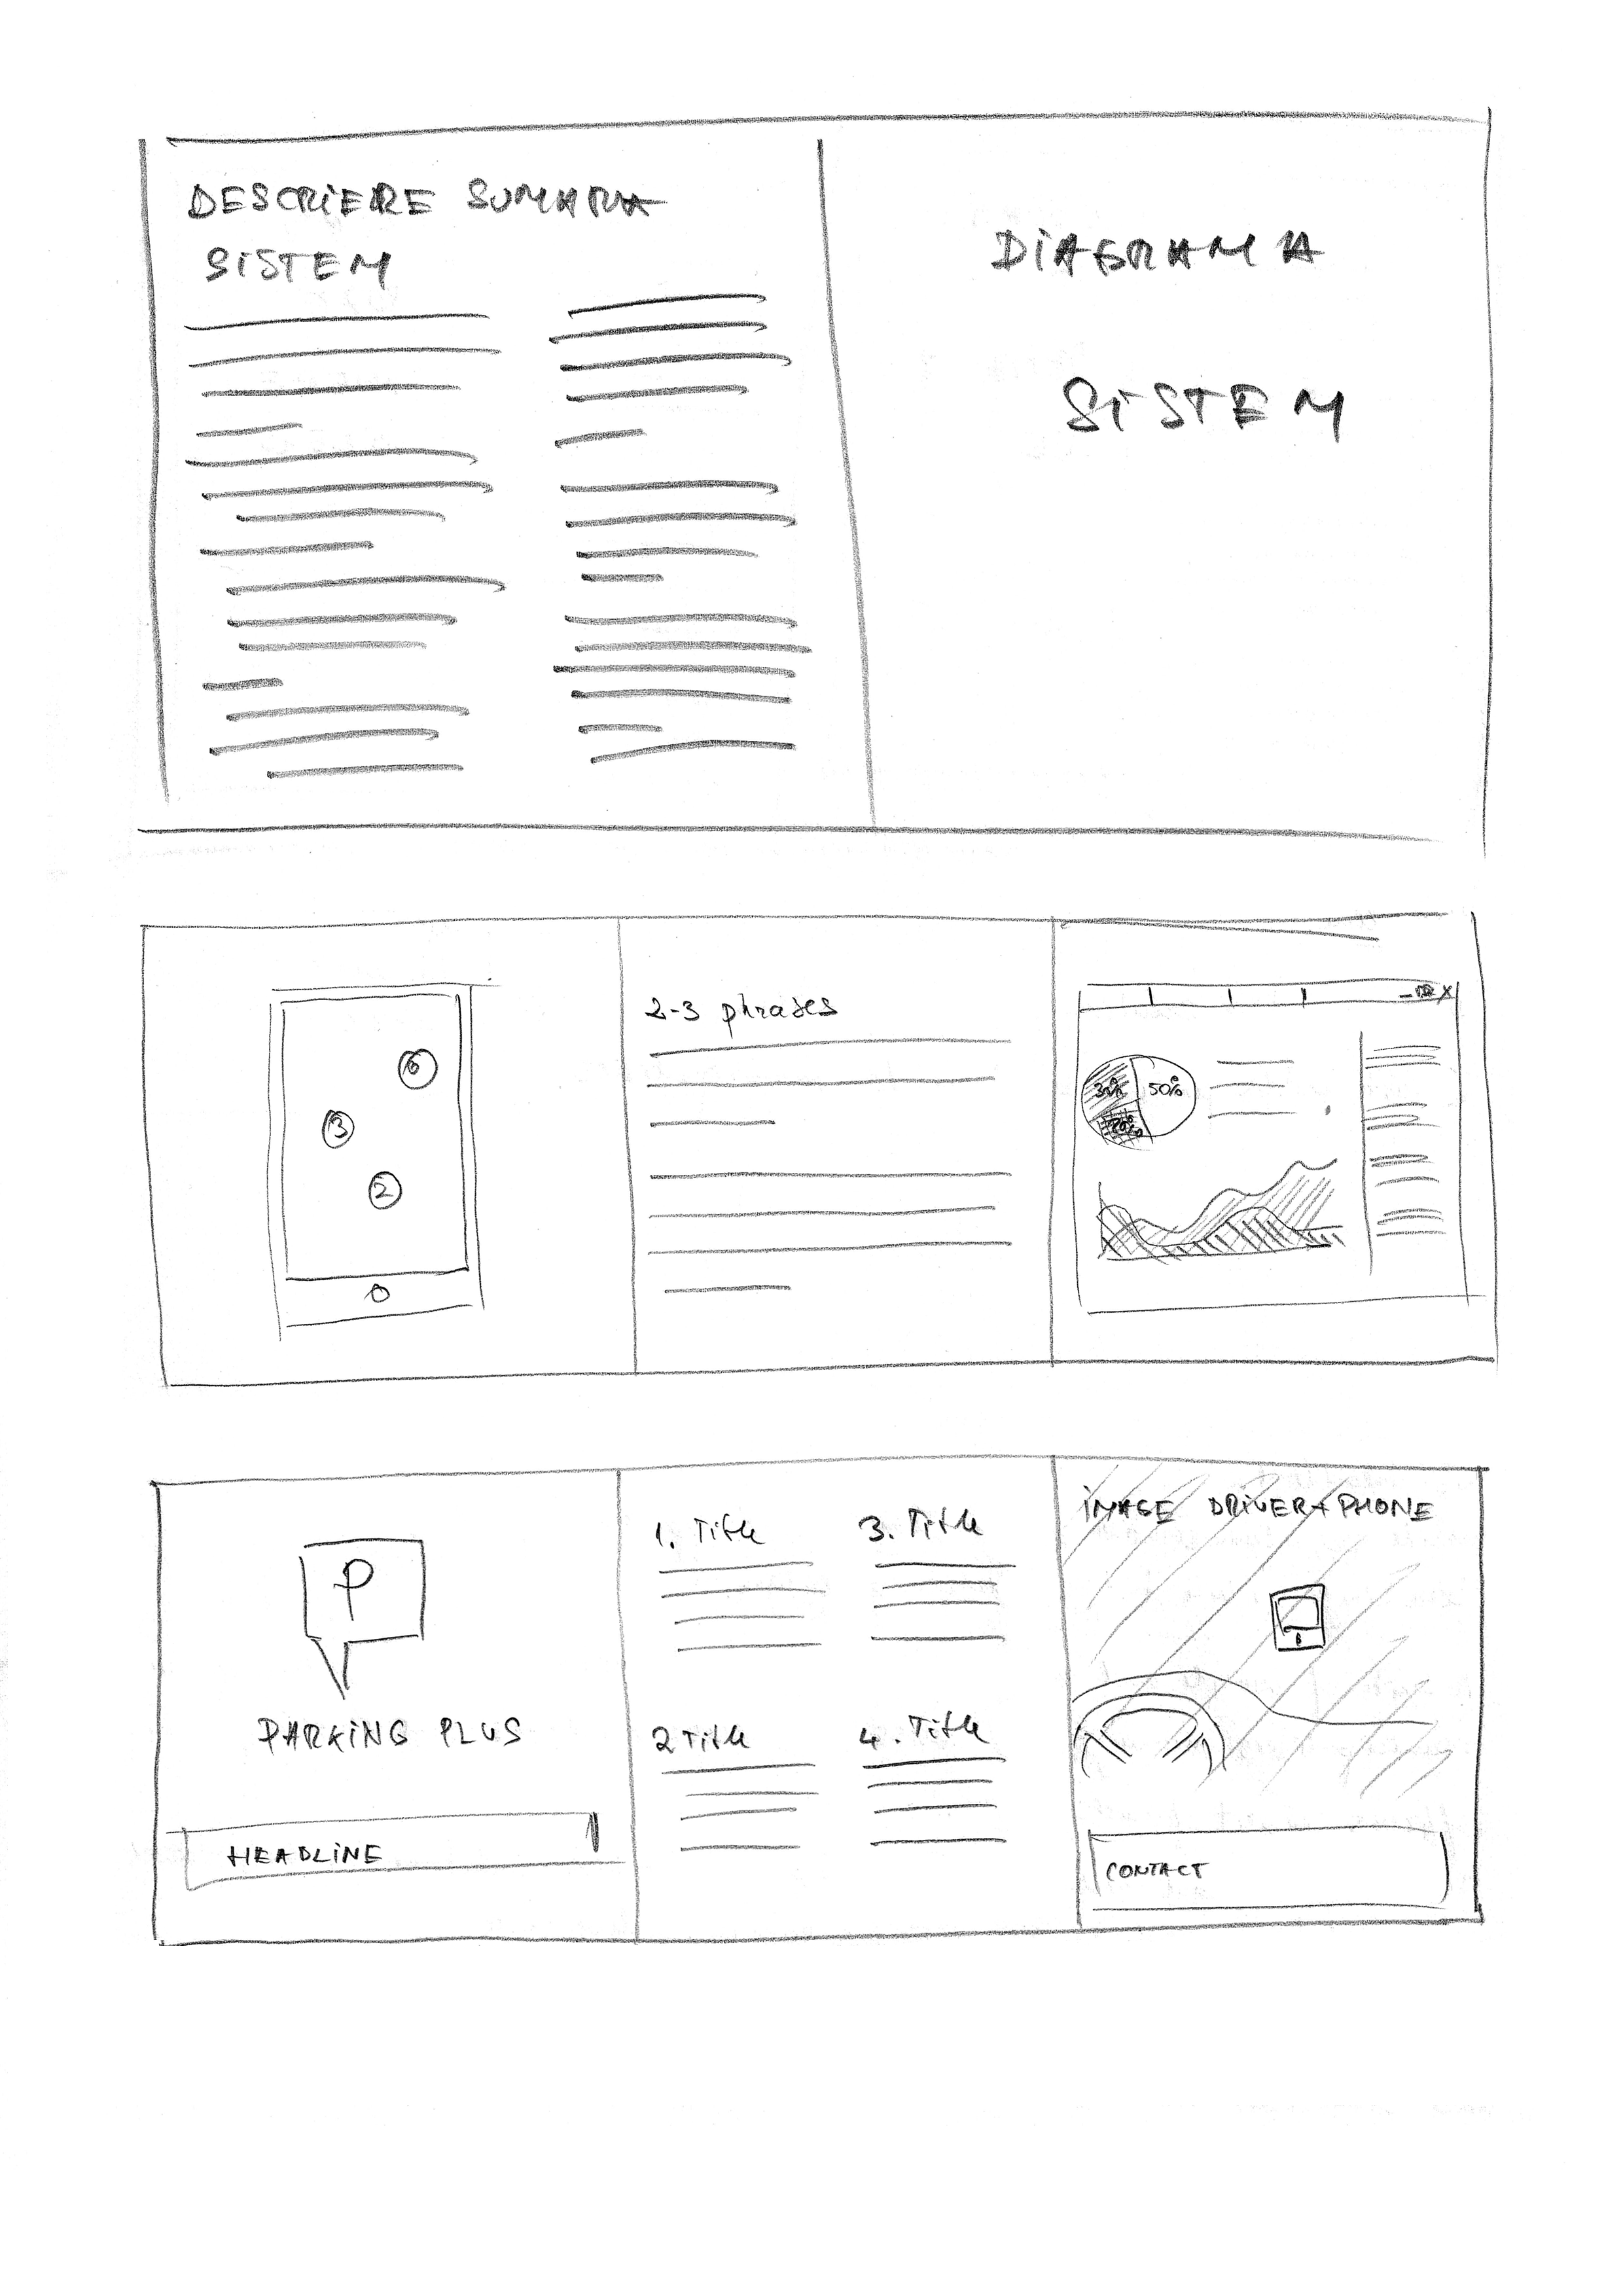 DESCRIERE SUMARA
SISTEM
DIAGRAMA
SISTEM
2-3 phrases
6
3
2
30%
50%
20%
P
PARKING PLUS
HEADLINE
1. Title
3. Title
2 Title
4. Title
IMAGE DRIVER+PHONE
CONTACT